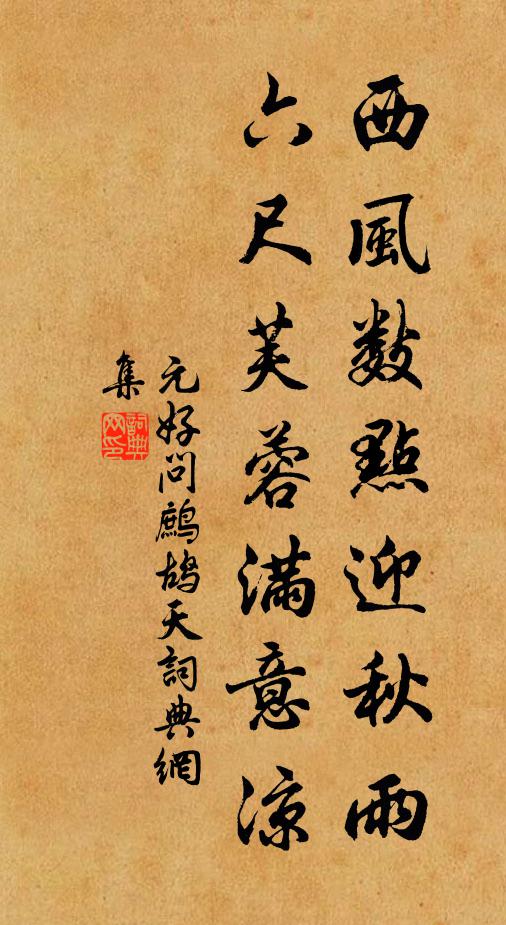 西風數點迎秋雨
六尺芙蓉滿意涼
元好問鷓鴣天詞典網
集
詞典
网印